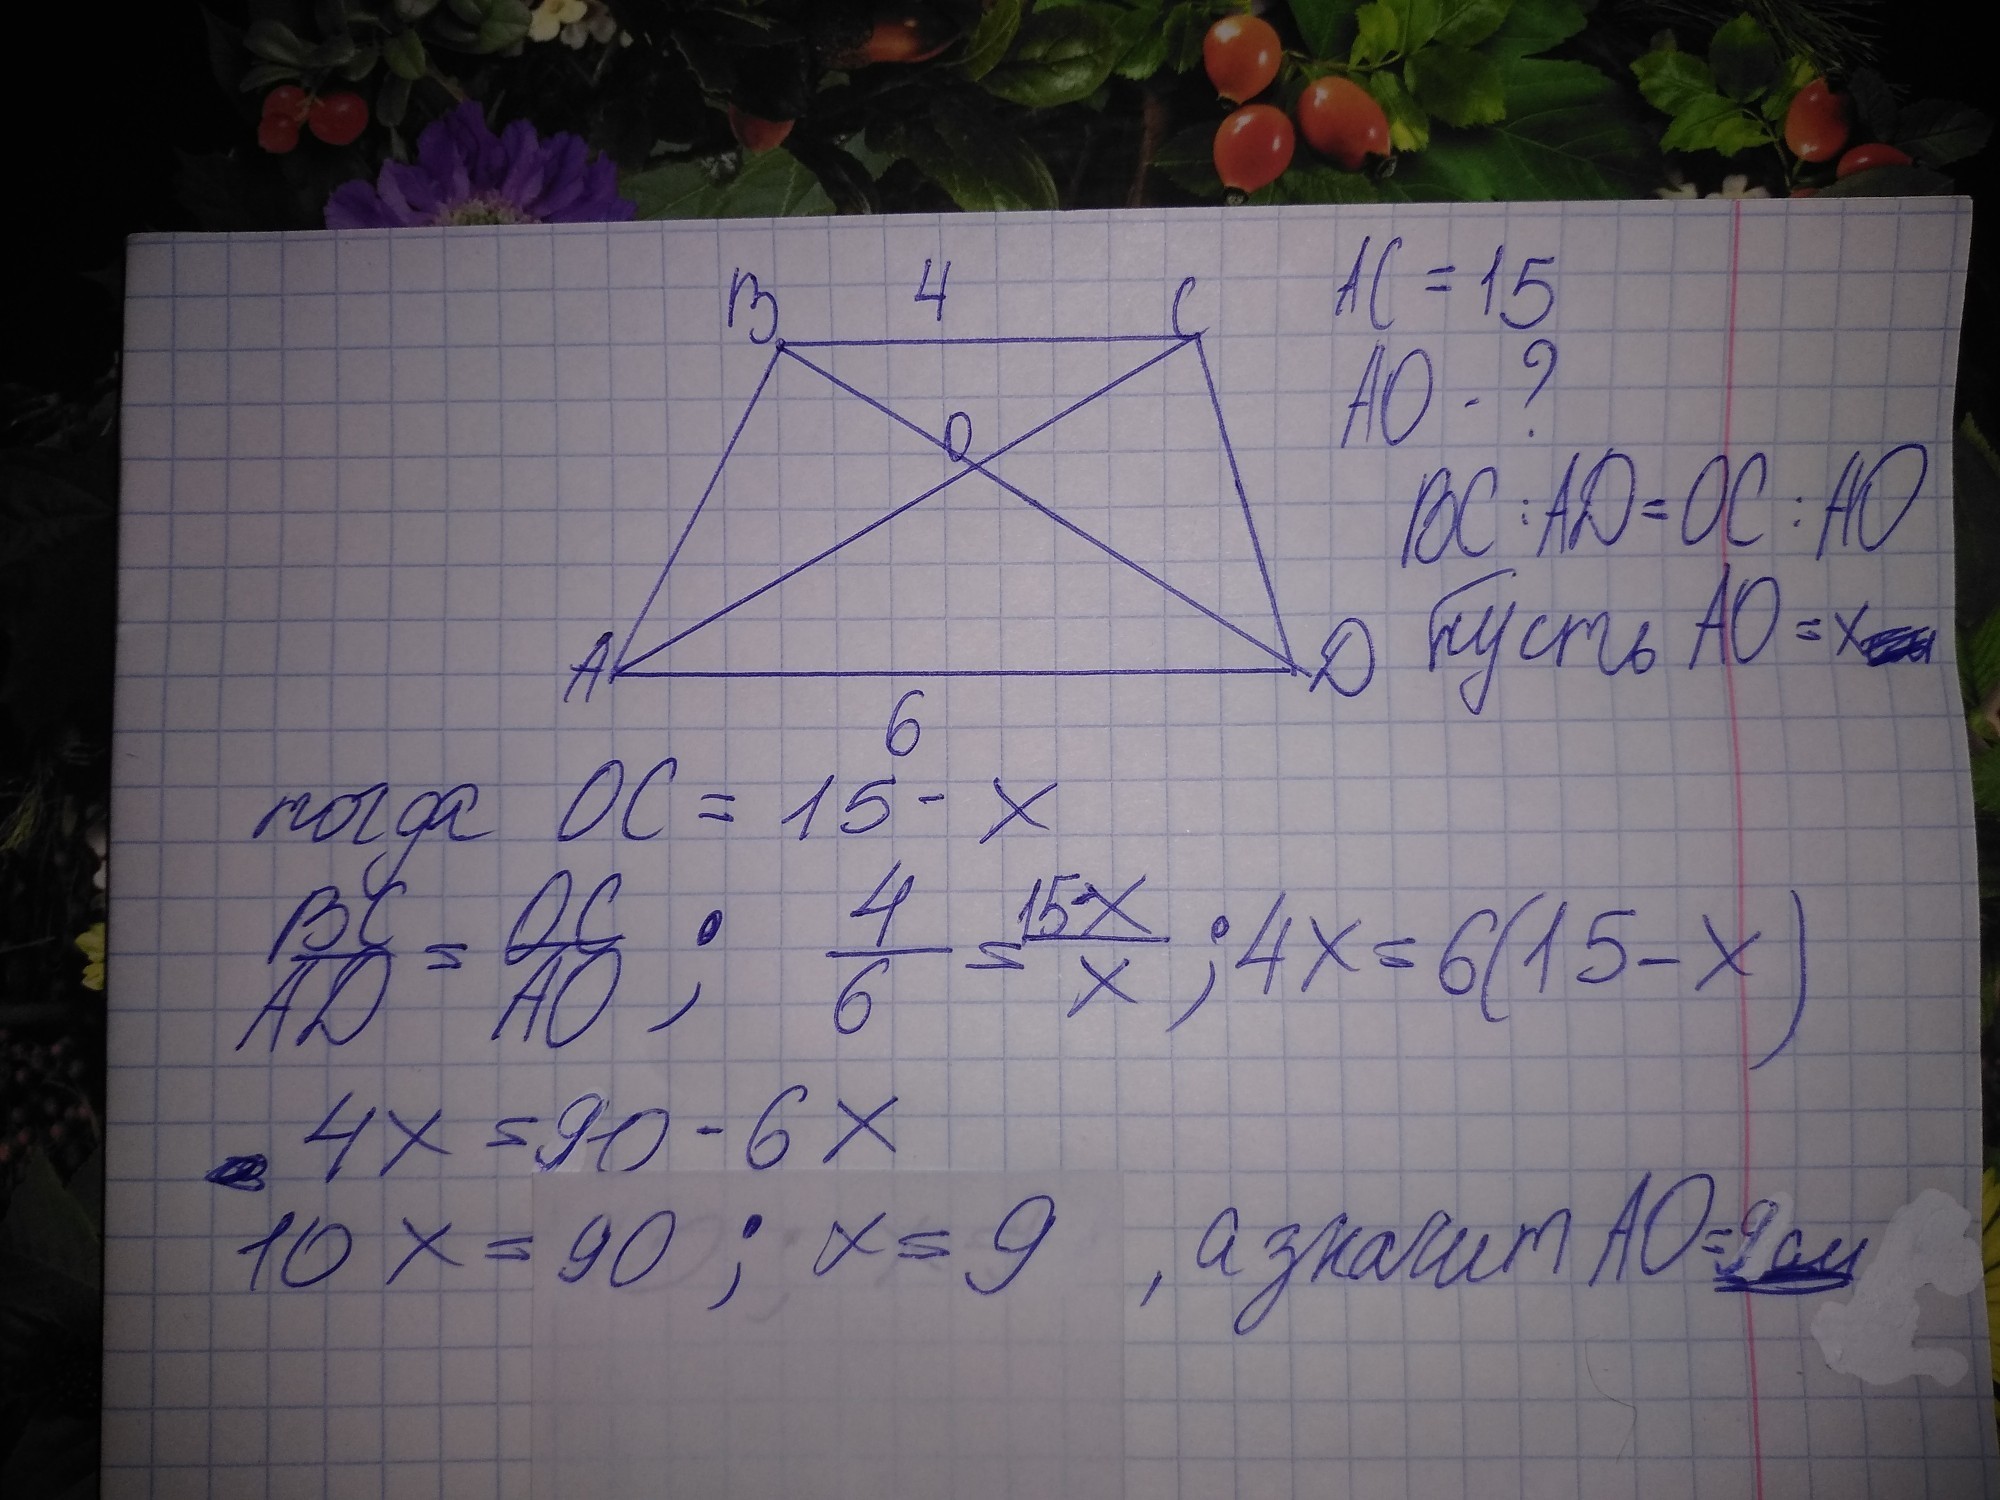 B 4 C
AC = 15
AO - ?
O
BC : AD = OC : AO
Пусть AO = x
A D
6
тогда OC = 15 - x
BC/AD = OC/AO ; 4/6 = 15-x/x ; 4x = 6(15 - x)
4x = 90 - 6x
10x = 90 ; x = 9 , а значит AO = 9 см